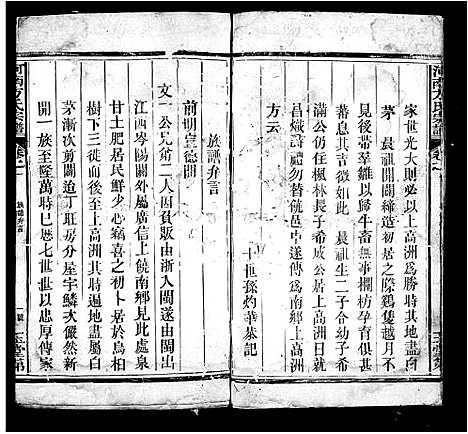 河南方氏宗譜
家世光大則必以上高洲為勝時其地盡白
茅 晨祖開闢締造初居之際鷄隻越月不
見後率羣雛以歸牛畜無事欄枋孕育俱甚
蕃息其吉徵如此 晨祖生二子合幼予
滿公仍住楓林長子希成公居上高洲日就
昌熾詩禮勿替歲邑中遂傳為高洲
方云
十世孫灼華恭記
族譜弁言
前明宣德間
文一公兄弟二人因貿販由浙入閩遂由閩出
江西岑陽關外屬廣信上饒南鄉見此處泉
甘土肥居民鮮少心竊喜之初卜居於烏桕
樹下三徙而後上高洲其時遍地盡屬白
茅漸次剪闢造丁班房分屋宇鱗次儼然新
開一族至隆萬時已歷七世世以忠厚傳家
河南方氏宗譜
卷之一
族譜弁言
一
玉堂第